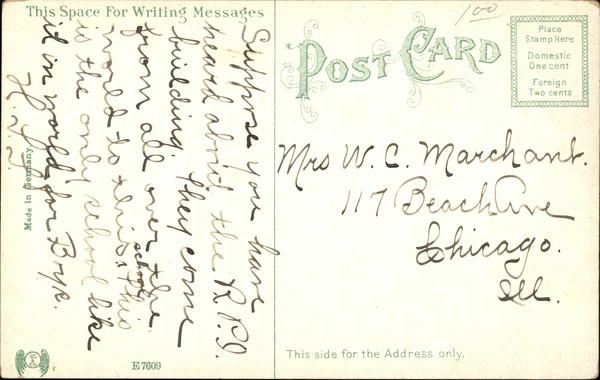 This Space For Writing Messages
Suppose you have
heard about the R.P.I.
building. They come
from all over the
world to this
school
. this
is the only school like
it in world for Boys.
Made in Germany.
E7609
1.00
POST CARD
Place
Stamp Here
Domestic
One cent
Foreign
Two cents
Mrs W. C. Marchant.
117 Beach Ave
Chicago.
Ill.
This side for the Address only.